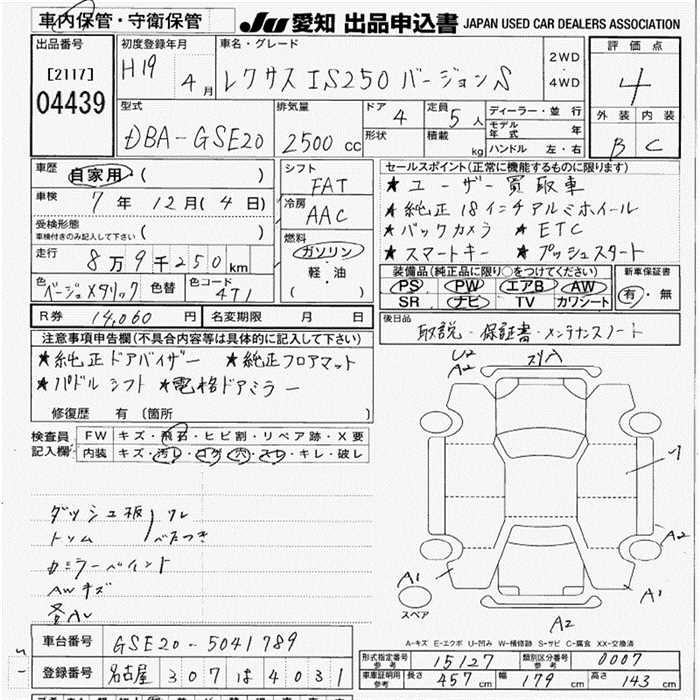 車内保管・守衛保管
JU 愛知 出品申込書 JAPAN USED CAR DEALERS ASSOCIATION
出品番号
[2117]
04439
初度登録年月
H19 4月
車名・グレード
レクサス IS250 バージョンS
2WD
・
4WD
評価点
4
外装 内装
B C
型式
DBA-GSE20
排気量
2500 cc
ドア 4
形状
定員 5人
積載 kg
ディーラー・並行
モデル年式 年
ハンドル 左・右
車歴
自家用・( )
車検 7年 12月(4日)
受検形態
車検付きのみ記入して下さい ( )
走行 8万9千250km
色 ベージュメタリック 色替 色コード 4T1
シフト
FAT
冷房
AAC
燃料
ガソリン
軽・油
( )
セールスポイント(正常に機能するものに限ります)
★ユーザー買取車
★純正18インチアルミホイール
★バックカメラ ★ETC
★スマートキー ★プッシュスタート
装備品(純正品に限り○をつけてください)
PS PW エアB AW
SR ナビ TV カワシート
新車保証書
有・無
R券 14,060円 名変期限 月 日
後日品
取説・保証書・メンテナンスノート
注意事項申告欄(不具合内容等は具体的に記入して下さい)
★純正ドアバイザー ★純正フロアマット
★パドルシフト ★電格ドアミラー
修復歴 有(箇所 )
検査員記入欄
FW キズ・飛石・ヒビ割・リペア跡・X要
内装 キズ・汚レ・コゲ・穴・スレ・キレ・破レ
ダッシュ板 ワレ
トリム べたつき
カラーペイント
AWキズ
U2
A2
スリ穴
A2
A1
A1
A2
スペア
A-キズ E-エクボ U-凹み W-補修跡 S-サビ C-腐食 XX-交換済
車台番号 GSE20-5041789
登録番号 名古屋 307 は 4031
形式指定番号 参考 15127 類別区分番号 参考 0007
車庫証明用 参考 長さ 457cm 幅 179cm 高さ 143cm